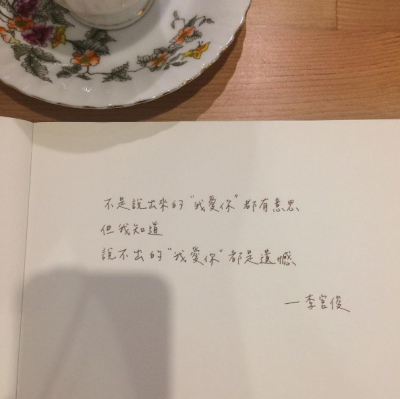 不是說出來的"我愛你"都有意思
但我知道
說不出的"我愛你"都是遺憾
—李宮俊